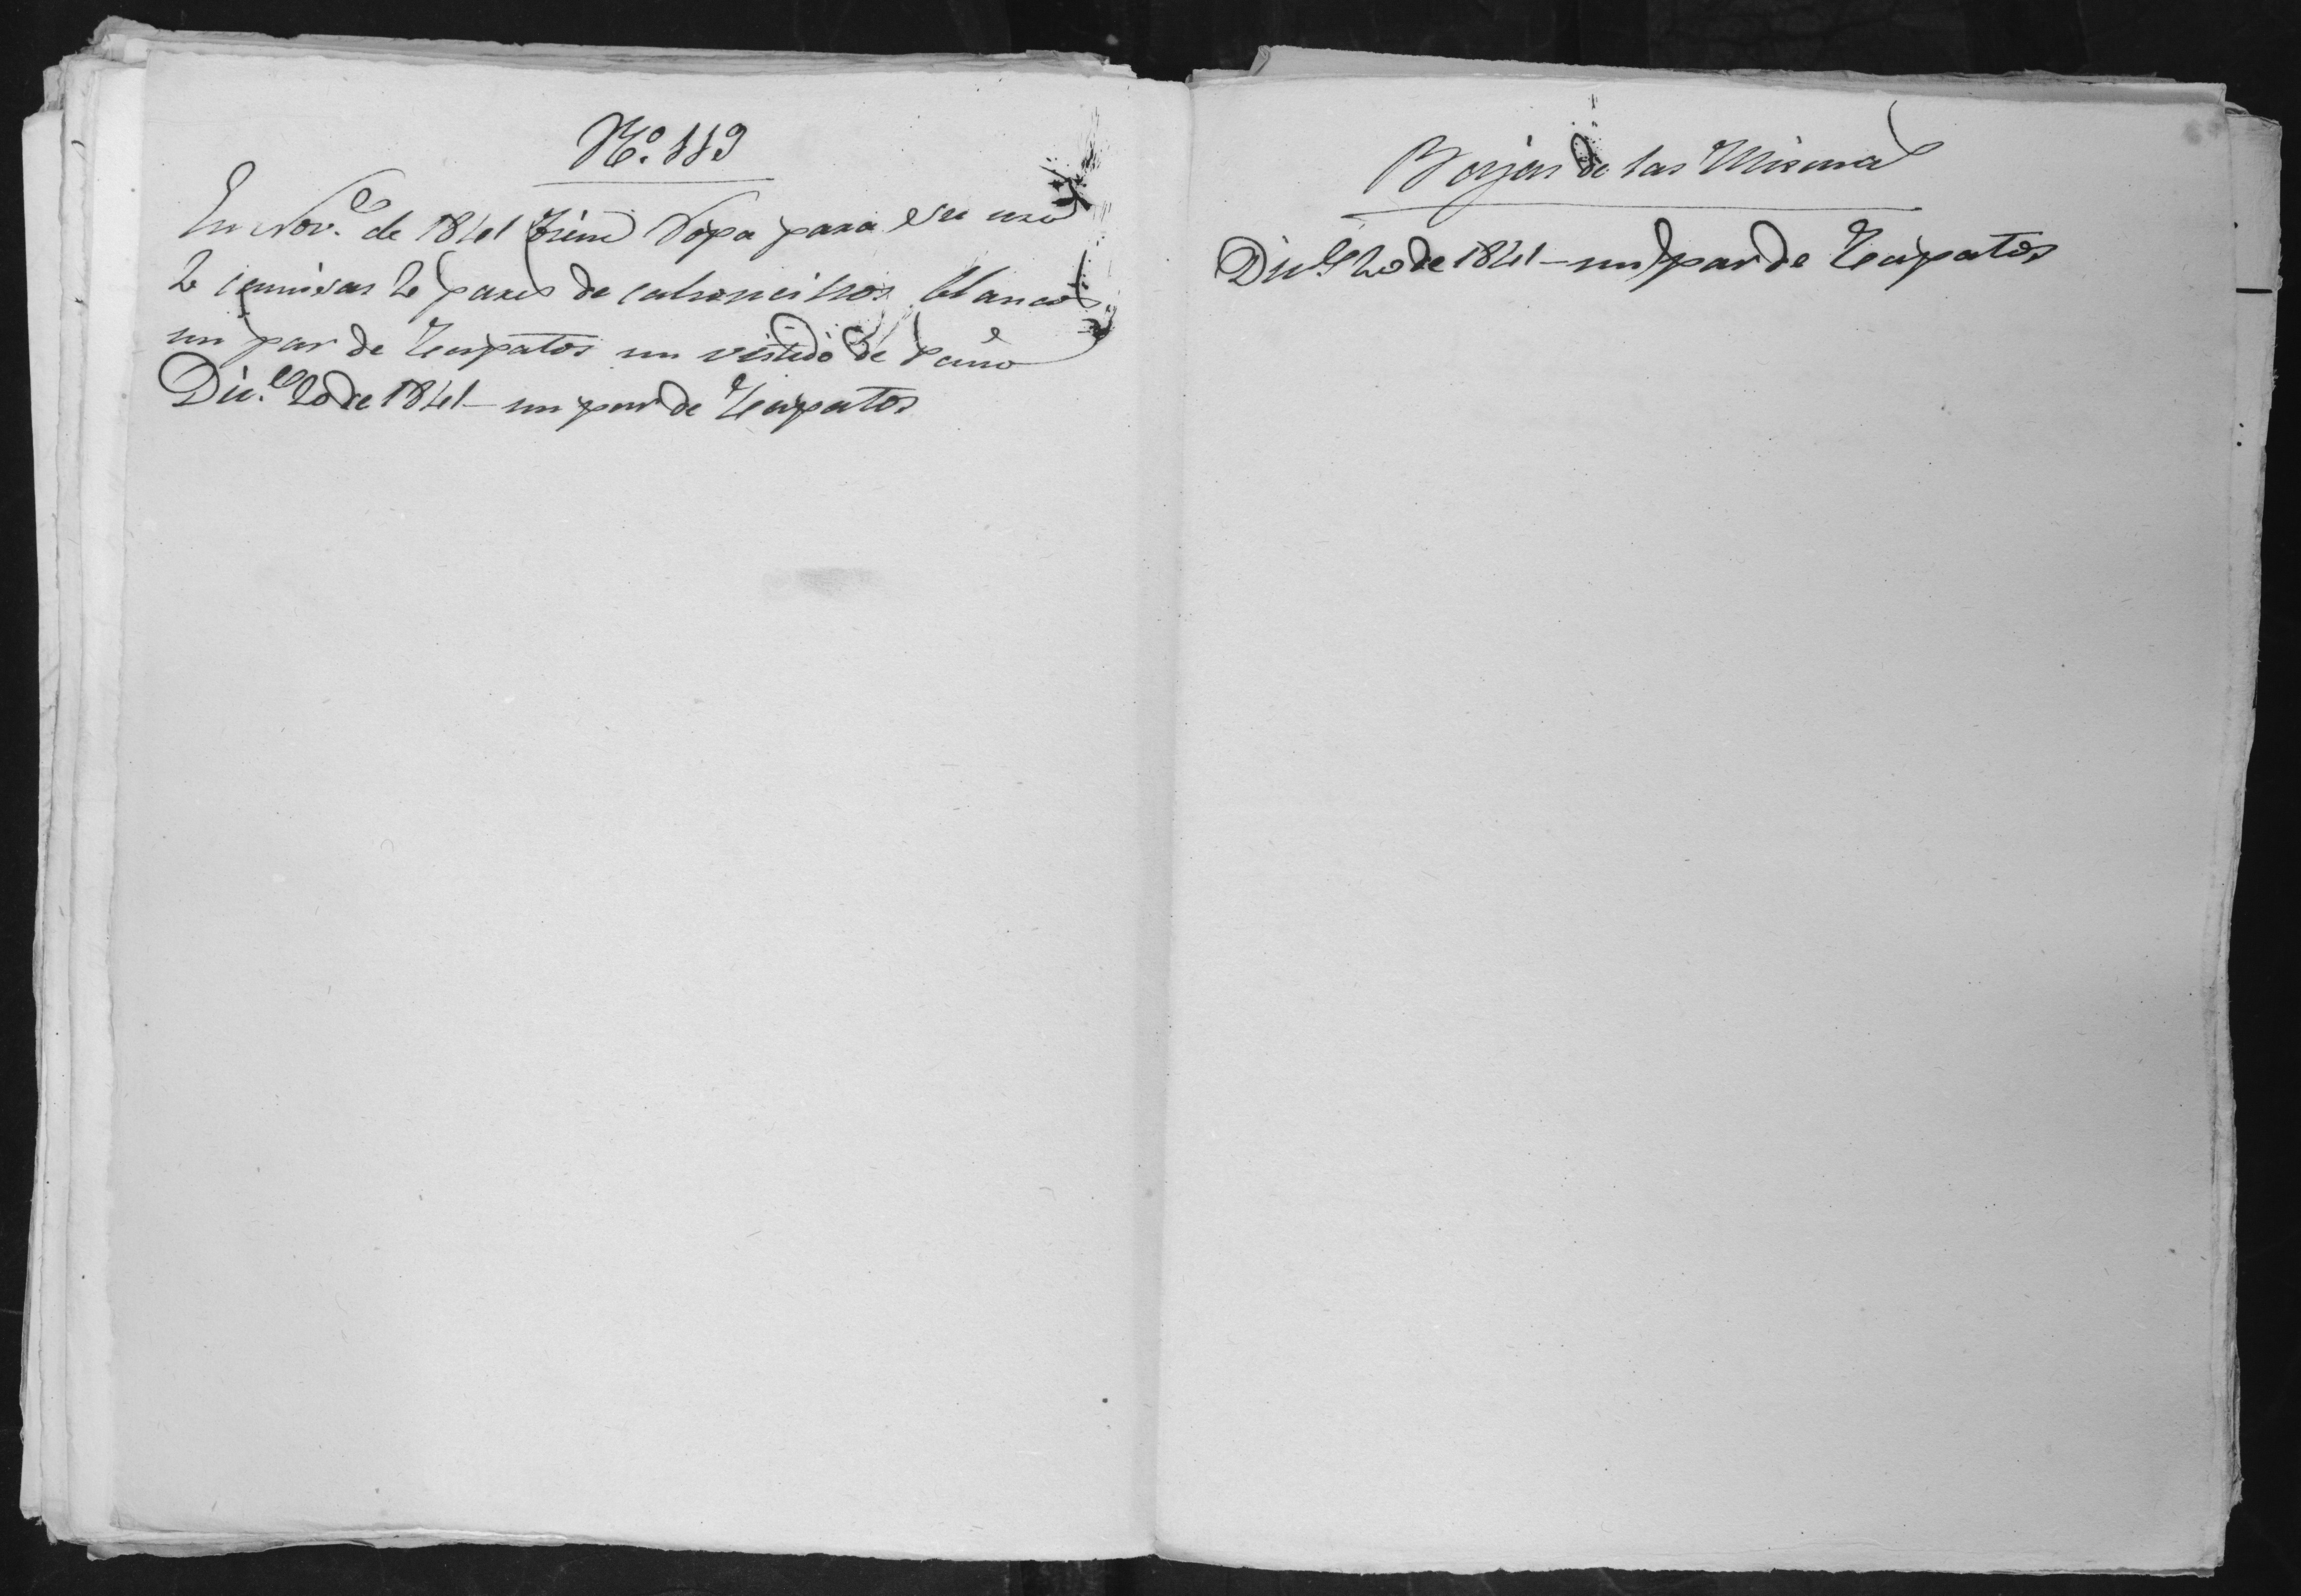 No. 113
En Nove. de 1841 tiene Ropa para su uso
2 camisas 2 pares de calsoncillos blancos
un par de Zapatos un vestido de Paño
Dice. 20 de 1841 — un par de Zapatos
Bajas de las Mismas
Dice. 20 de 1841 — un par de Zapatos